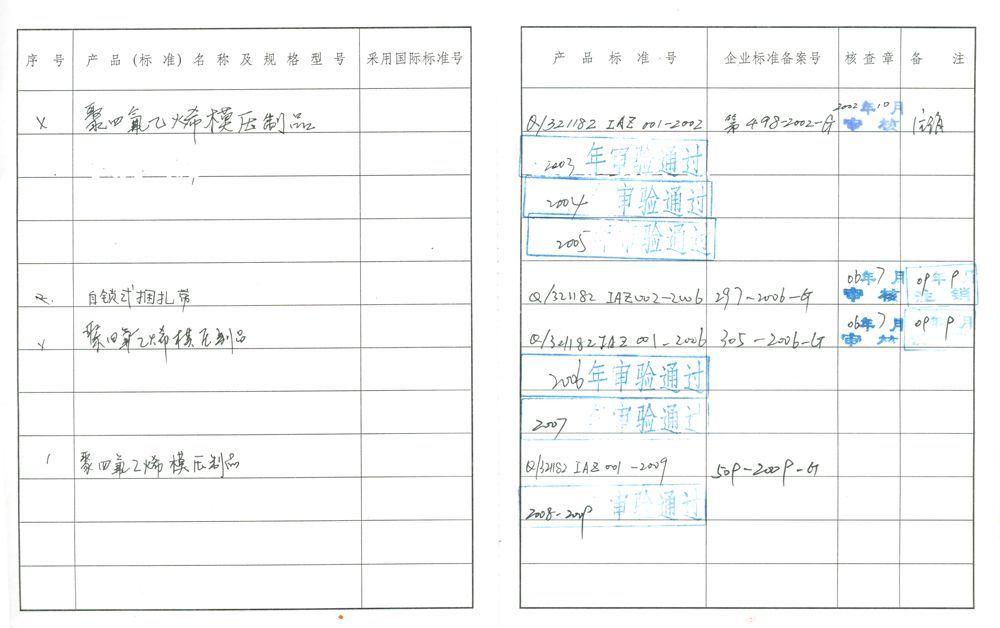 序号 产品(标准)名称及规格型号 采用国际标准号 产品标准号 企业标准备案号 核查章 备注
聚四氟乙烯模压制品 Q/321182 IAZ 001-2002 第498-2002-G 2002年10月 审核 注销
2003年审验通过
2004 审验通过
2005年审验通过
2. 自锁式捆扎带 Q/321182 IAZ002-2006 297-2006-G 06年7月 审核 09年9 注销
聚四氟乙烯模压制品 Q/321182 IAZ 001-2006 305-2006-G 06年7月 审核 09年9月
2006年审验通过
2007年审验通过
1 聚四氟乙烯模压制品 Q/321182 IAZ 001-2009 509-2009-G
2008-2009 审验通过